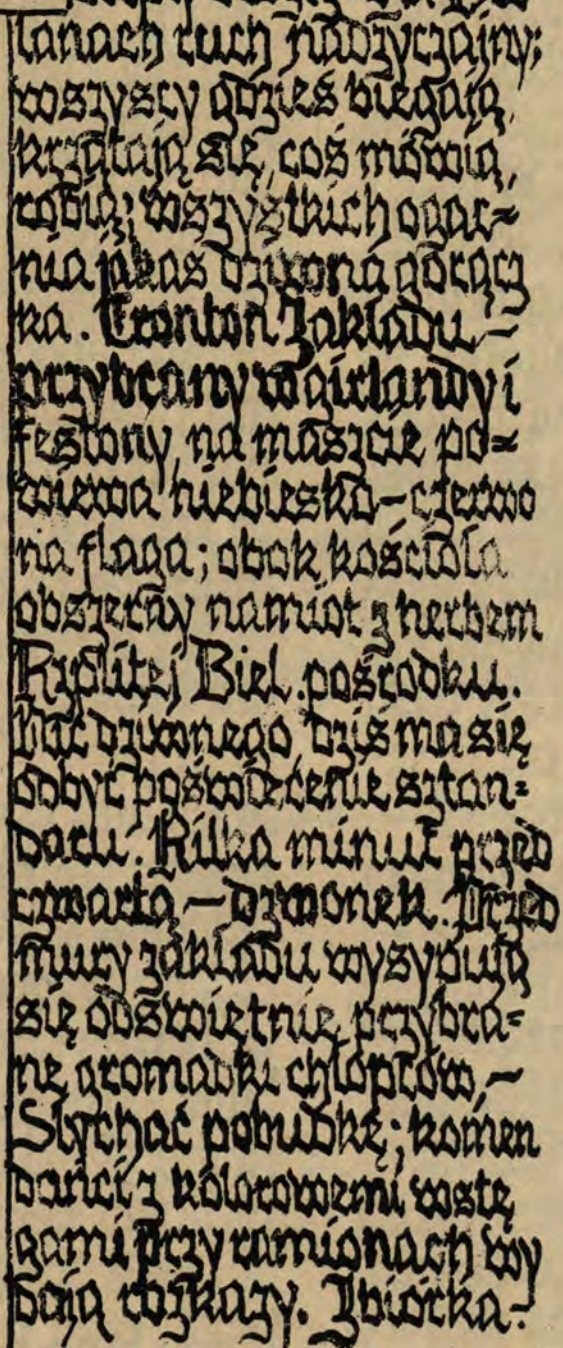 łanach ruch nadzyczajny;
wszyscy gdzieś biegają,
krzątają się, coś mówią,
robią; wszystkich ogar=
nia jakaś dziwna gorącz
ka. Fronton Zakładu –
przybrany w girlandy i
festony, na maszcie po=
wiewa niebiesko – czerwo
na flaga; obok kościoła
obszerny namiot z herbem
Rzplitej Biel. pośrodku.
Nic dziwnego, dziś ma się
odbyć poświęcenie sztan=
daru. Kilka minut przed
czwartą – dzwonek. Przed
mury zakładu wysypują
się odświętnie przybra=
ne gromadki chłopców, –
Słychać pobudkę; komen
danci z kolorowemi wstę
gami przy ramionach wy
dają rozkazy. Zbiórka.